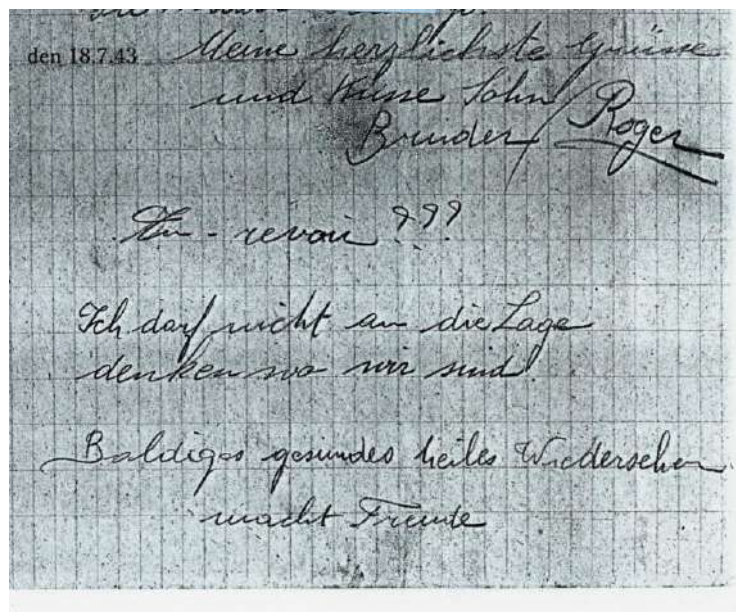 den 18.7.43 Meine herzlichste Grüsse
und Küsse Sohn /
Bruder / Roger
Au-revoir ???
Ich darf nicht an die Lage
denken wo wir sind.
Baldiges gesundes heiles Wiedersehen
macht Freude